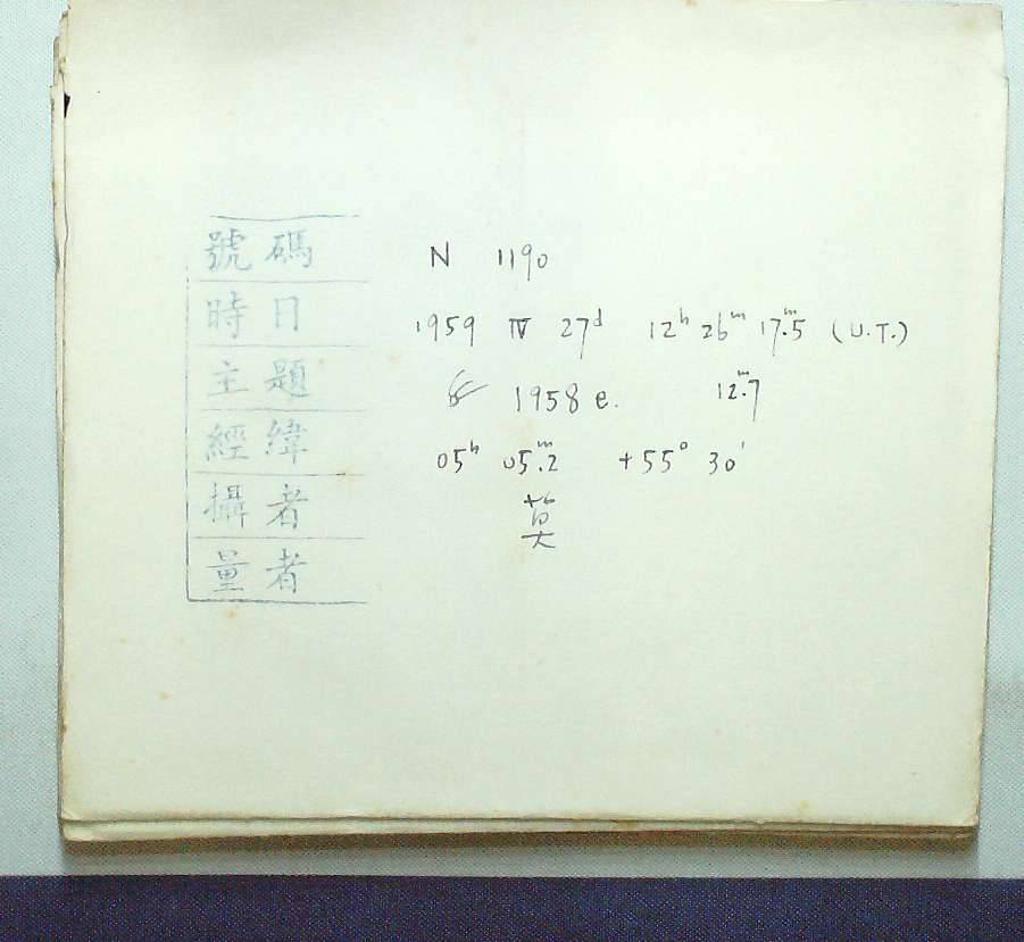 號碼 N 1190
時日 1959 IV 27d 12h 26m 17m.5 (U.T.)
主題 1958 e. 12m.7
經緯 05h 05m.2 +55° 30'
攝者 莫
量者